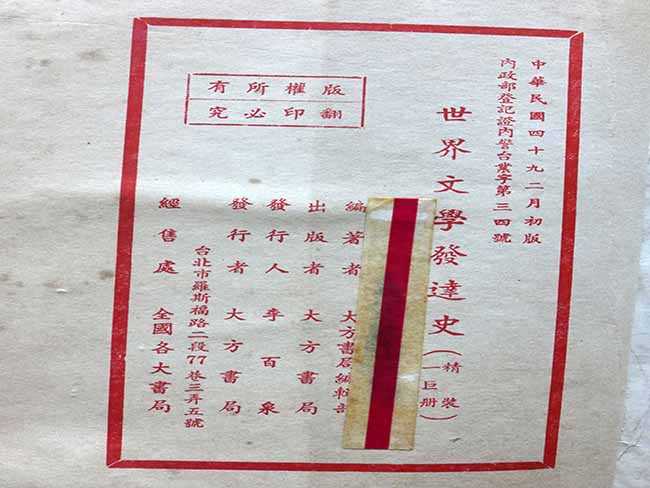 中華民國四十九二月初版
內政部登記證內警台業字第三四號
世界文學發達史(精裝一巨册)
版權所有
翻印必究
編著者 大方書局編輯部
出版者 大方書局
發行人 李百泉
發行者 大方書局
台北市羅斯福路二段77巷三弄五號
經售處 全國各大書局